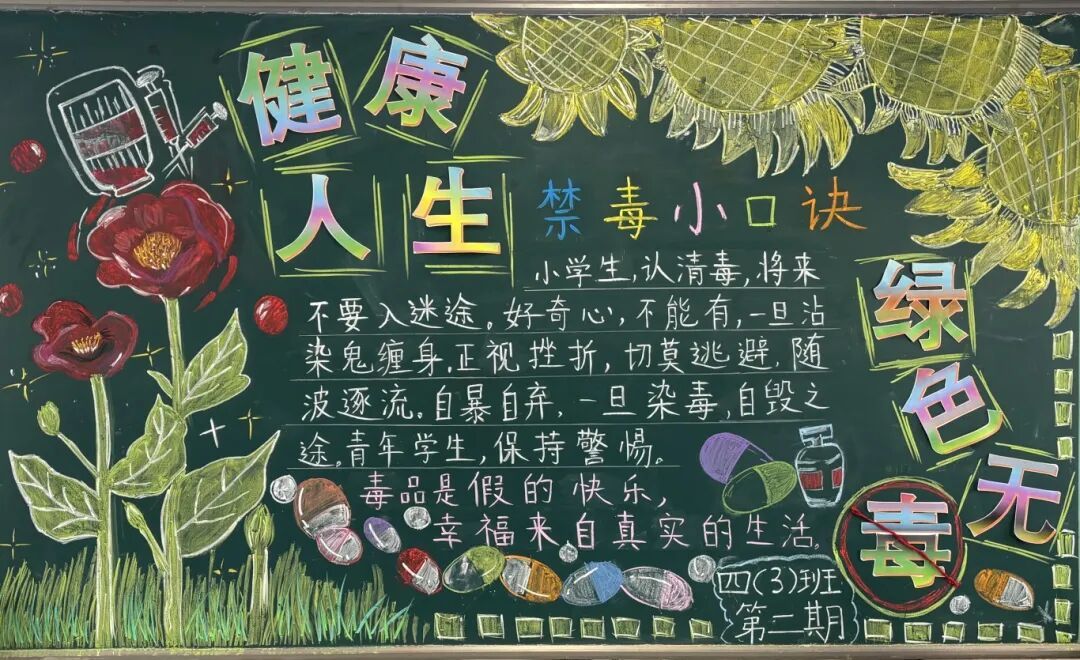 健康
人生
禁毒小口诀
小学生,认清毒,将来
不要入迷途。好奇心,不能有,一旦沾
染鬼缠身.正视挫折,切莫逃避.随
波逐流。自暴自弃.一旦染毒,自毁之
途。青年学生,保持警惕。
毒品是假的快乐,
幸福来自真实的生活。
绿
色
无
毒
四(3)班
第二期